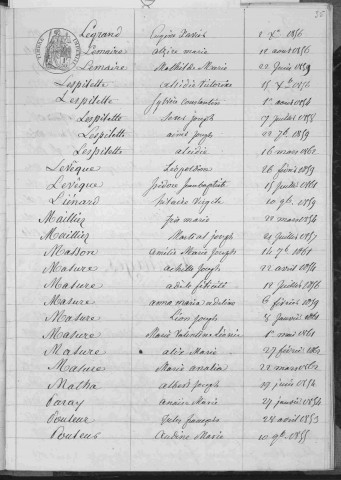 25
Legrand Eugène David 2 Xbre 1856
Lemaire Alzire Marie 12 aout 1856
Lemaire Mathilde Marie 22 Juin 1859
Lespilette
Lespilette Sylvie Constantin 1er aout 1854
Lespilette Joseph 17 Juillet 1855
Lespilette aimé Joseph 22 7bre 1859
Lespilette alcide 16 mars 1862
Levêque Léopoldine 26 février 1859
Levêque Isidore Jean Baptiste 15 Juillet 1861
Liénard 10 9bre 1859
Maillier Marie 22 mars 1854
Maillier Martial Joseph 21 Juillet 1857
Masson Amélie Marie Joseph 14 7bre 1861
Masure achille Joseph 22 avril 1854
Masure adèle félicité 12 Juillet 1856
Masure anna maria 6 février 1859
Masure Léon Joseph 5 Janvier 1861
Masure Marie Valentine Léonie 1er mai 1861
Masure alix Marie 27 février 1862
Masure Marie analia 22 mars 1862
Matha albert Joseph 19 juin 1854
Anaïse Marie 24 janvier 1854
Jules François 28 avril 1853
Marie 10 9bre 1855